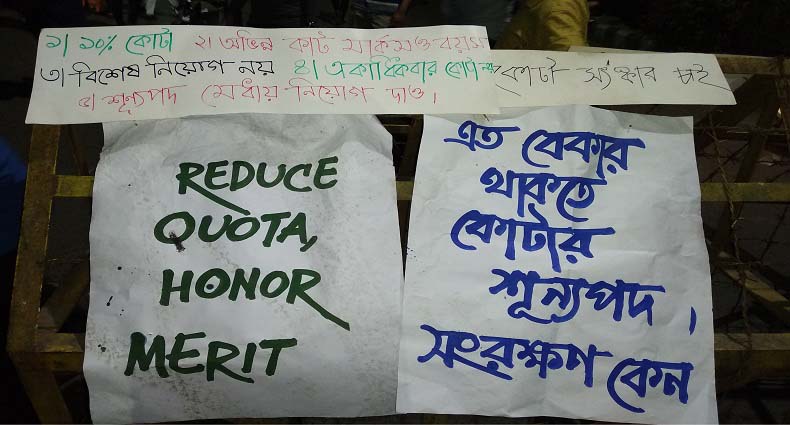 ১। ১০% কোটা ২। অভিন্ন কাট মার্কস ও বয়স
৩। বিশেষ নিয়োগ নয় ৪। একাধিকবার কোটা নয়
৫। শূন্যপদ মেধায় নিয়োগ দাও।
কোটা সংস্কার চাই
REDUCE
QUOTA,
HONOR
MERIT
এত বেকার
থাকতে
কোটার
শূন্যপদ।
সংরক্ষণ কেন